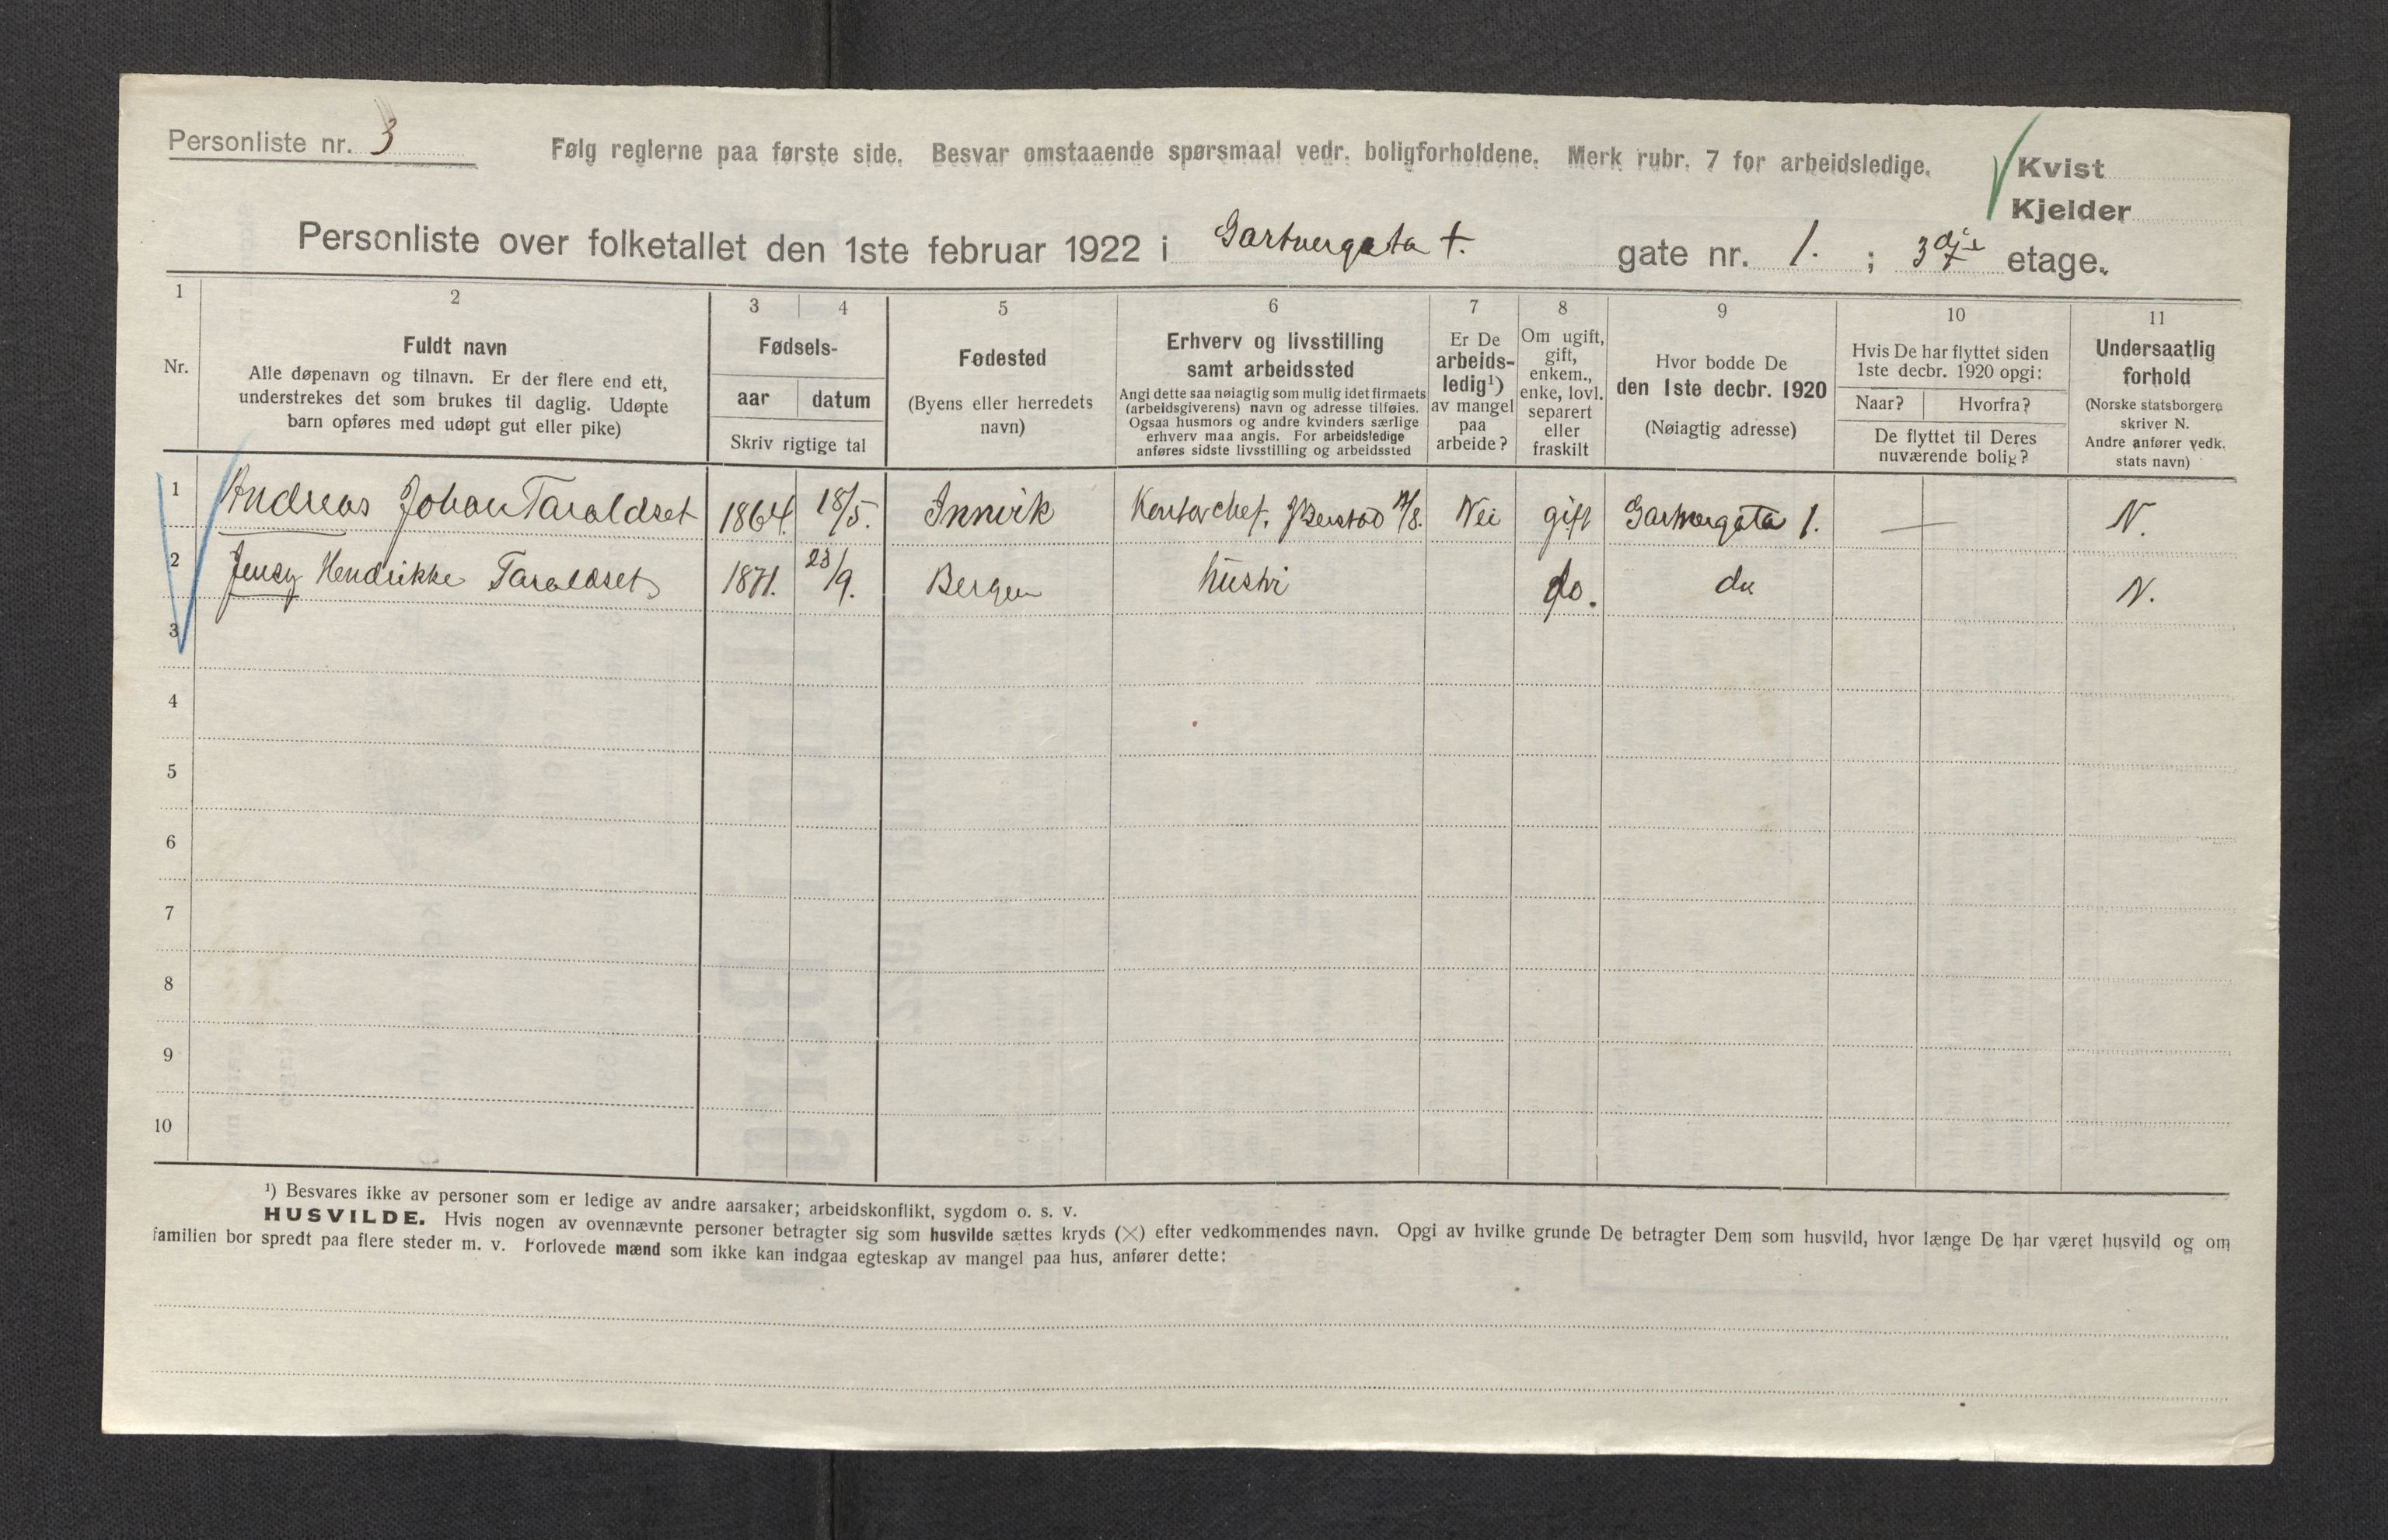 Personliste nr. 3
Følg reglerne paa første side. Besvar omstaaende spørsmaal vedr. boligforholdene. Merk rubr. 7 for arbeidsledige.
Kvist
Kjelder
Personliste over folketallet den 1ste februar 1922 i Gartnergata gate nr. 1. ; 3dje etage.
1 2 3 4 5 6 7 8 9 10 11
Nr.
Fuldt navn
Alle døpenavn og tilnavn. Er der flere end ett,
understrekes det som brukes til daglig. Udøpte
barn opføres med udøpt gut eller pike)
Fødsels-
aar datum
Skriv rigtige tal
Fødested
(Byens eller herredets
navn)
Erhverv og livsstilling
samt arbeidssted
Angi dette saa nøiagtig som mulig idet firmaets
(arbeidsgiverens) navn og adresse tilføies.
Ogsaa husmors og andre kvinders særlige
erhverv maa angis. For arbeidsledige
anføres sidste livsstilling og arbeidssted
Er De
arbeids-
ledig¹)
av mangel
paa
arbeide?
Om ugift,
gift,
enkem.,
enke, lovl.
separert
eller
fraskilt
Hvor bodde De
den 1ste decbr. 1920
(Nøiagtig adresse)
Hvis De har flyttet siden
1ste decbr. 1920 opgi:
Naar? Hvorfra?
De flyttet til Deres
nuværende bolig?
Undersaatlig
forhold
(Norske statsborgere
skriver N.
Andre anfører vedk.
stats navn)
1 Andreas Johan Taraldset 1864. 18/5. Innvik Kontorchef, Nei gift Gartnergata 1. N.
2 Jensy Hendrikke Taraldset 1871. 23/9. Bergen hustru do. do N.
3
4
5
6
7
8
9
10
¹) Besvares ikke av personer som er ledige av andre aarsaker; arbeidskonflikt, sygdom o. s. v.
HUSVILDE. Hvis nogen av ovennævnte personer betragter sig som husvilde sættes kryds (×) efter vedkommendes navn. Opgi av hvilke grunde De betragter Dem som husvild, hvor længe De har været husvild og om
familien bor spredt paa flere steder m. v. Forlovede mænd som ikke kan indgaa egteskap av mangel paa hus, anfører dette: